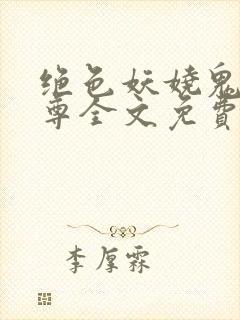 绝色妖娆鬼
尊全文免费
李厚霖